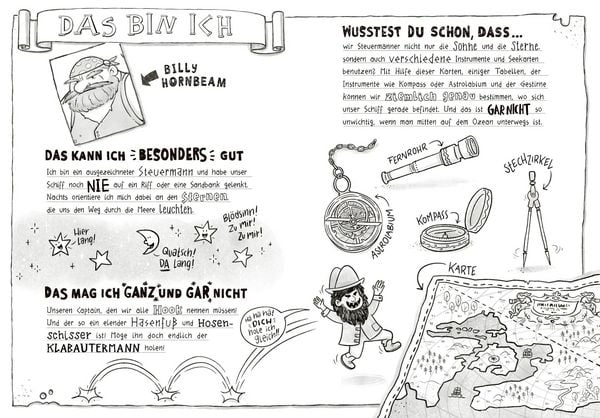 DAS BIN ICH
BILLY
HORNBEAM
DAS KANN ICH BESONDERS GUT
Ich bin ein ausgezeichneter Steuermann und habe unser
Schiff noch NIE auf ein Riff oder eine Sandbank gelenkt.
Nachts orientiere ich mich dabei an den Sternen,
die uns den Weg durch die Meere leuchten.
Hier
lang!
Quatsch!
DA lang!
Blödsinn!
Zu mir!
Zu mir!
DAS MAG ICH GANZ UND GAR NICHT
Unseren Captain, den wir alle Hook nennen müssen!
Und der so ein elender Hasenfuß und Hosen-
schisser ist! Möge ihn doch endlich der
KLABAUTERMANN holen!
Ha ha ha!
DICH
hole ich
gleich!!
WUSSTEST DU SCHON, DASS...
wir Steuermänner nicht nur die Sonne und die Sterne,
sondern auch verschiedene Instrumente und Seekarten
benutzen? Mit Hilfe dieser Karten, einiger Tabellen, der
Instrumente wie Kompass oder Astrolabium und der Gestirne
können wir ziemlich genau bestimmen, wo sich
unser Schiff gerade befindet. Und das ist GAR NICHT so
unwichtig, wenn man mitten auf dem Ozean unterwegs ist.
FERNROHR
STECHZIRKEL
ASTROLABIUM
KOMPASS
KARTE